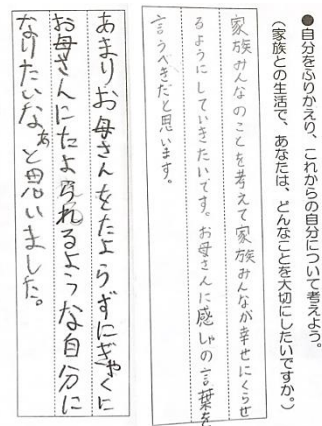 ●自分をふりかえり、これからの自分について考えよう。
（家族との生活で、あなたは、どんなことを大切にしたいですか。）
家族みんなのことを考えて家族みんなが幸せにくらせ
るようにしていきたいです。お母さんに感しゃの言葉を
言うべきだと思います。
あまりお母さんをたよらずにぎゃくに
お母さんにたよられるような自分に
なりたいなぁと思いました。